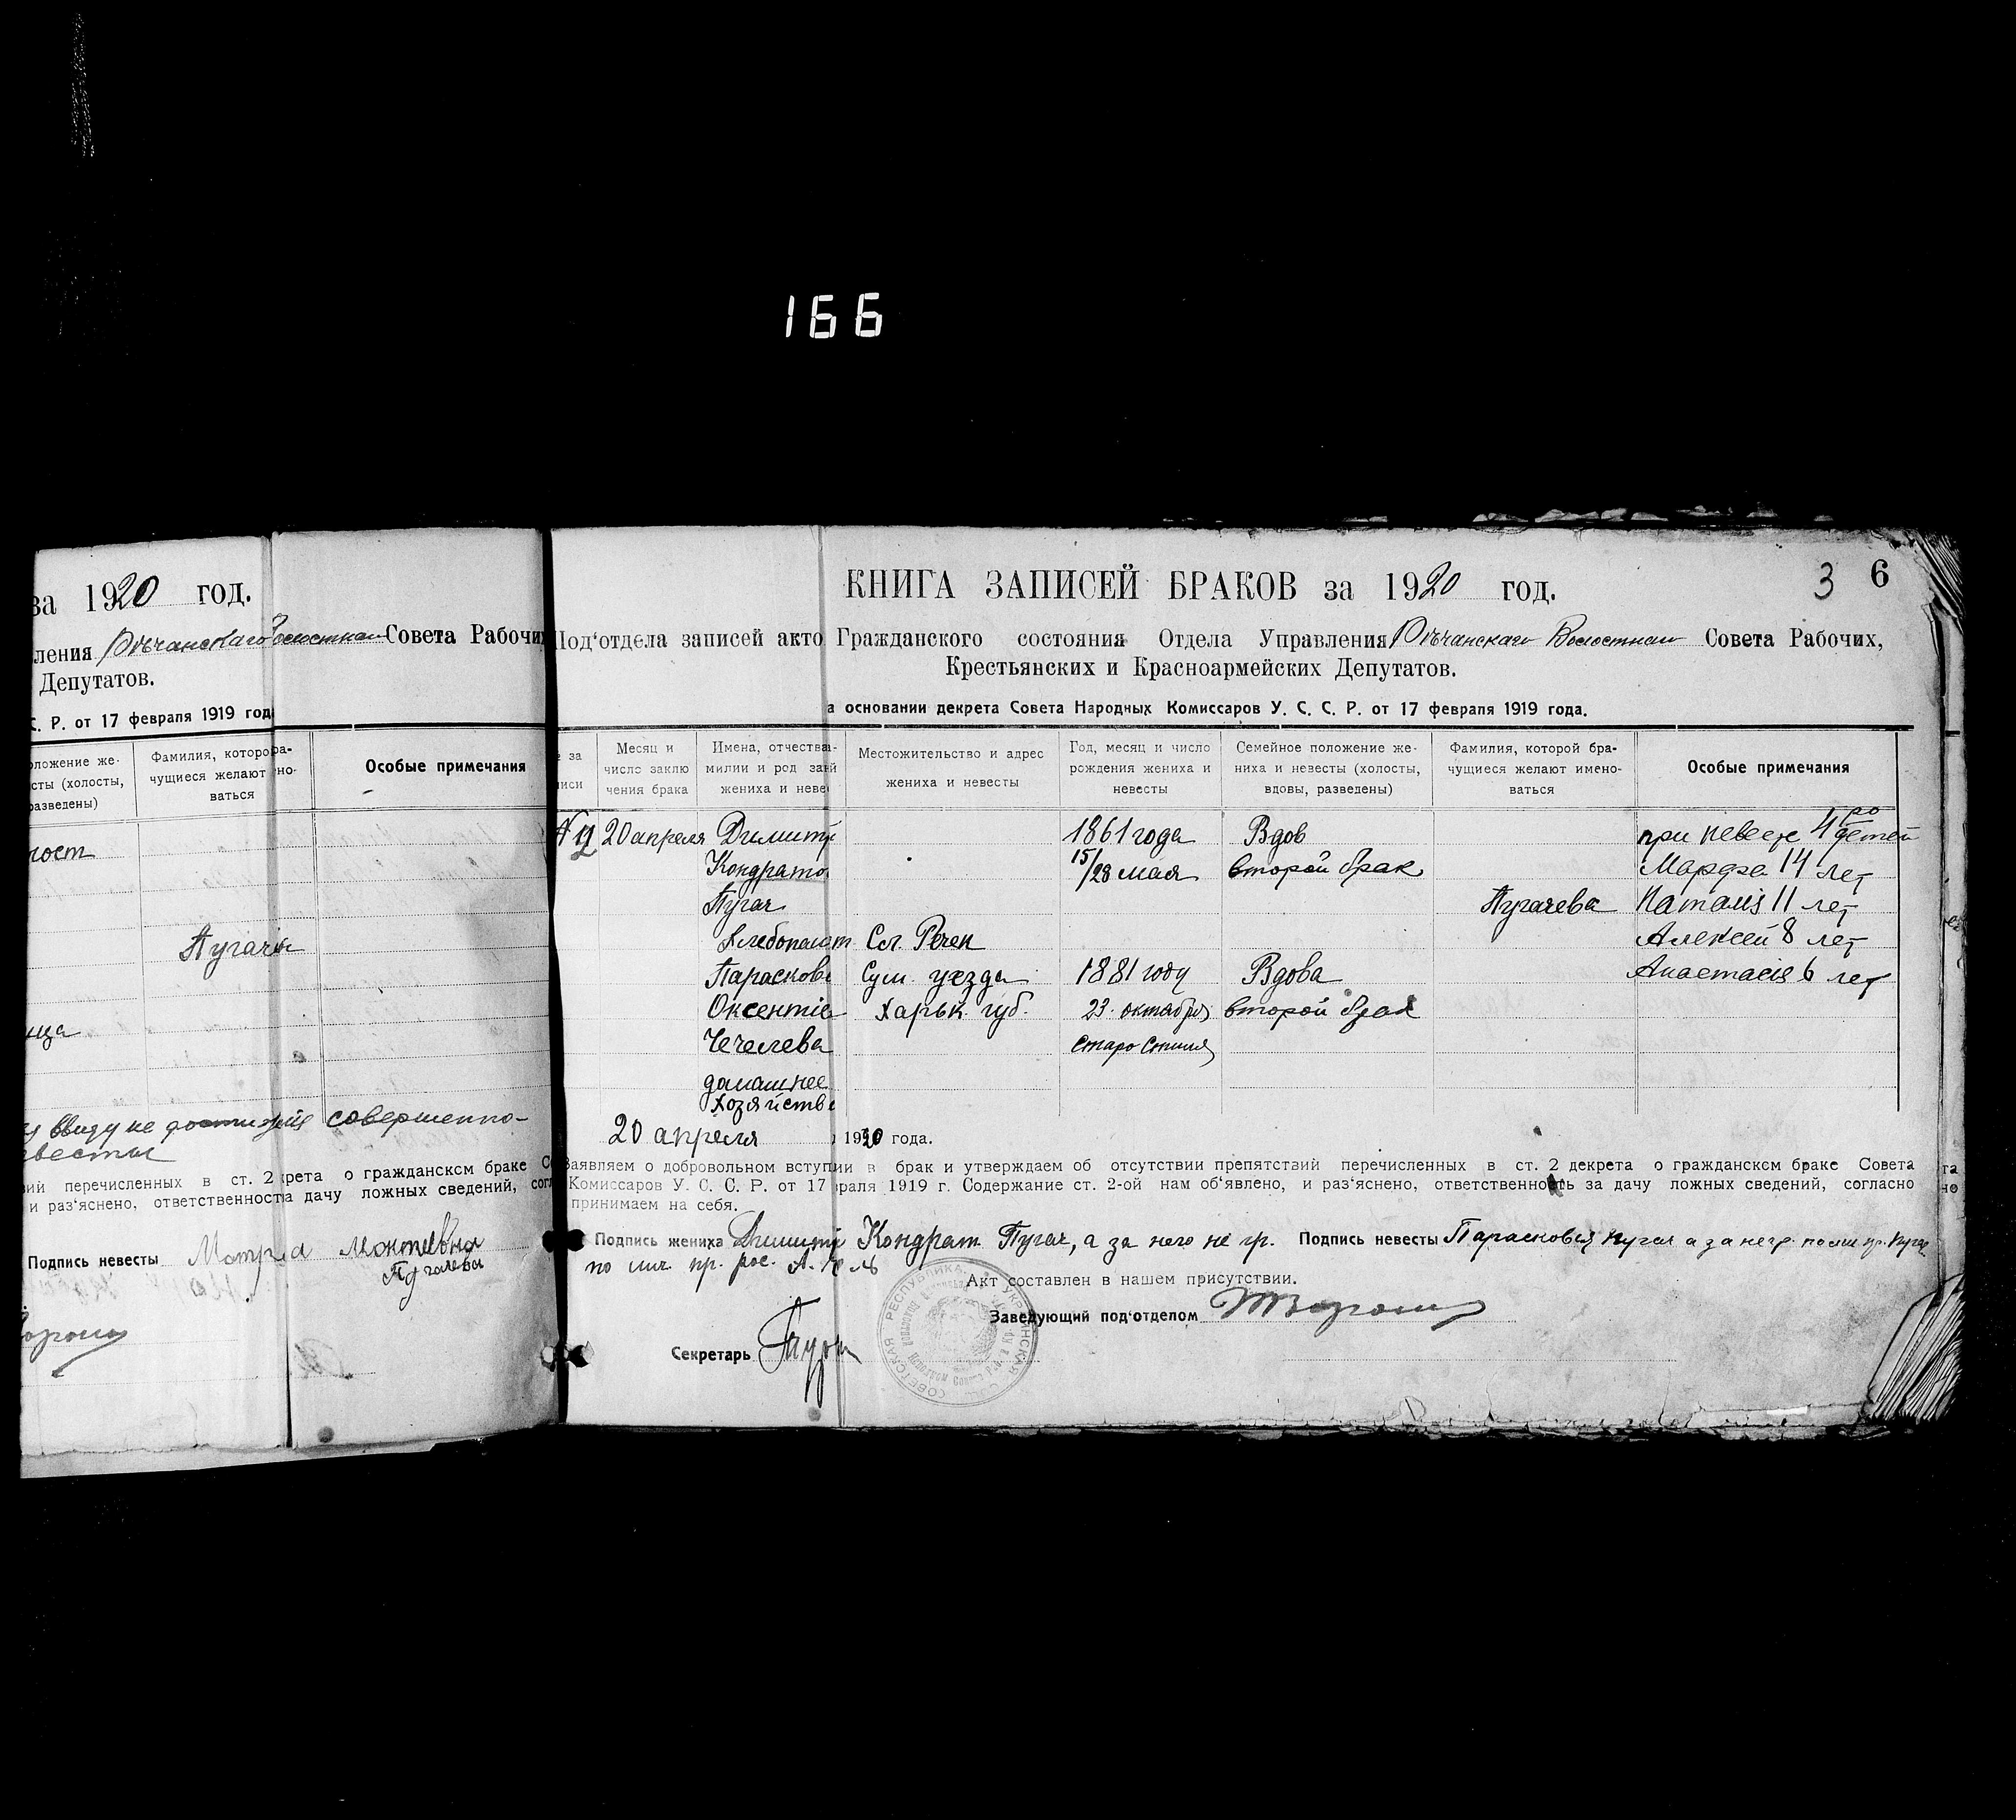 166
за 1920 год.
ления Рѣчанскаго Волостном Совета Рабочих
Депутатов.
С. Р. от 17 февраля 1919 года
оложение же-
сты (холосты,
разведены)
Фамилия, которо ра-
чущиеся желают но-
ваться
Особые примечания
лост
Пугачи
ица
ввиду не достижения совершенно-
невесты
ий перечисленных в ст. 2 крета о гражданском браке Со
и раз'яснено, ответственность а дачу ложных сведений, согл
Подпись невесты Мотря Мантеевна
Пугачева
КНИГА ЗАПИСЕЙ БРАКОВ за 1920 год.
3 6
Под'отдела записей акто Гражданского состояния Отдела Управления Рѣчанскаго Волостном Совета Рабочих,
Крестьянских и Красноармейских Депутатов.
а основании декрета Совета Народных Комиссаров У. С. С. Р. от 17 февраля 1919 года.
№ за
писи
Месяц и
число заклю
чения брака
Имена, отчества-
милии и род зай
жениха и неве
Местожительство и адрес
жениха и невесты
Год, месяц и число
рождения жениха и
невесты
Семейное положение же-
ниха и невесты (холосты,
вдовы, разведены)
Фамилия, которой бра-
чущиеся желают имено-
ваться
Особые примечания
№ 2 20 апреля Димитр 1861 года Вдов при невесте 4ро детей
Кондрато 15/28 мая второй брак Марфа 14 лет
Пугач Пугачева Наталія 11 лет
Хлебопашт Сл. Речек Алексей 8 лет
Парасков Сум. уезда 1881 году Вдова Анастасія 6 лет
Оксентіе Харьк. губ. 23 октября второй брак
Чечелева старо стиля
домашнее
хозяйств
20 апреля 1920 года.
Заявляем о добровольном вступ ии в брак и утверждаем об отсутствии препятствий перечисленных в ст. 2 декрета о гражданском браке Совета
Комиссаров У. С. С. Р. от 17 раля 1919 г. Содержание ст. 2-ой нам об'явлено, и раз'яснено, ответственность за дачу ложных сведений, согласно
принимаем на себя.
Подпись жениха Димитрий Кондрат Пугач, а за него не гр. Подпись невесты Парасковья Пугач а за негр.
по лич. пр. рос.
Акт составлен в нашем присутствии.
Заведующий под'отделом
Секретарь